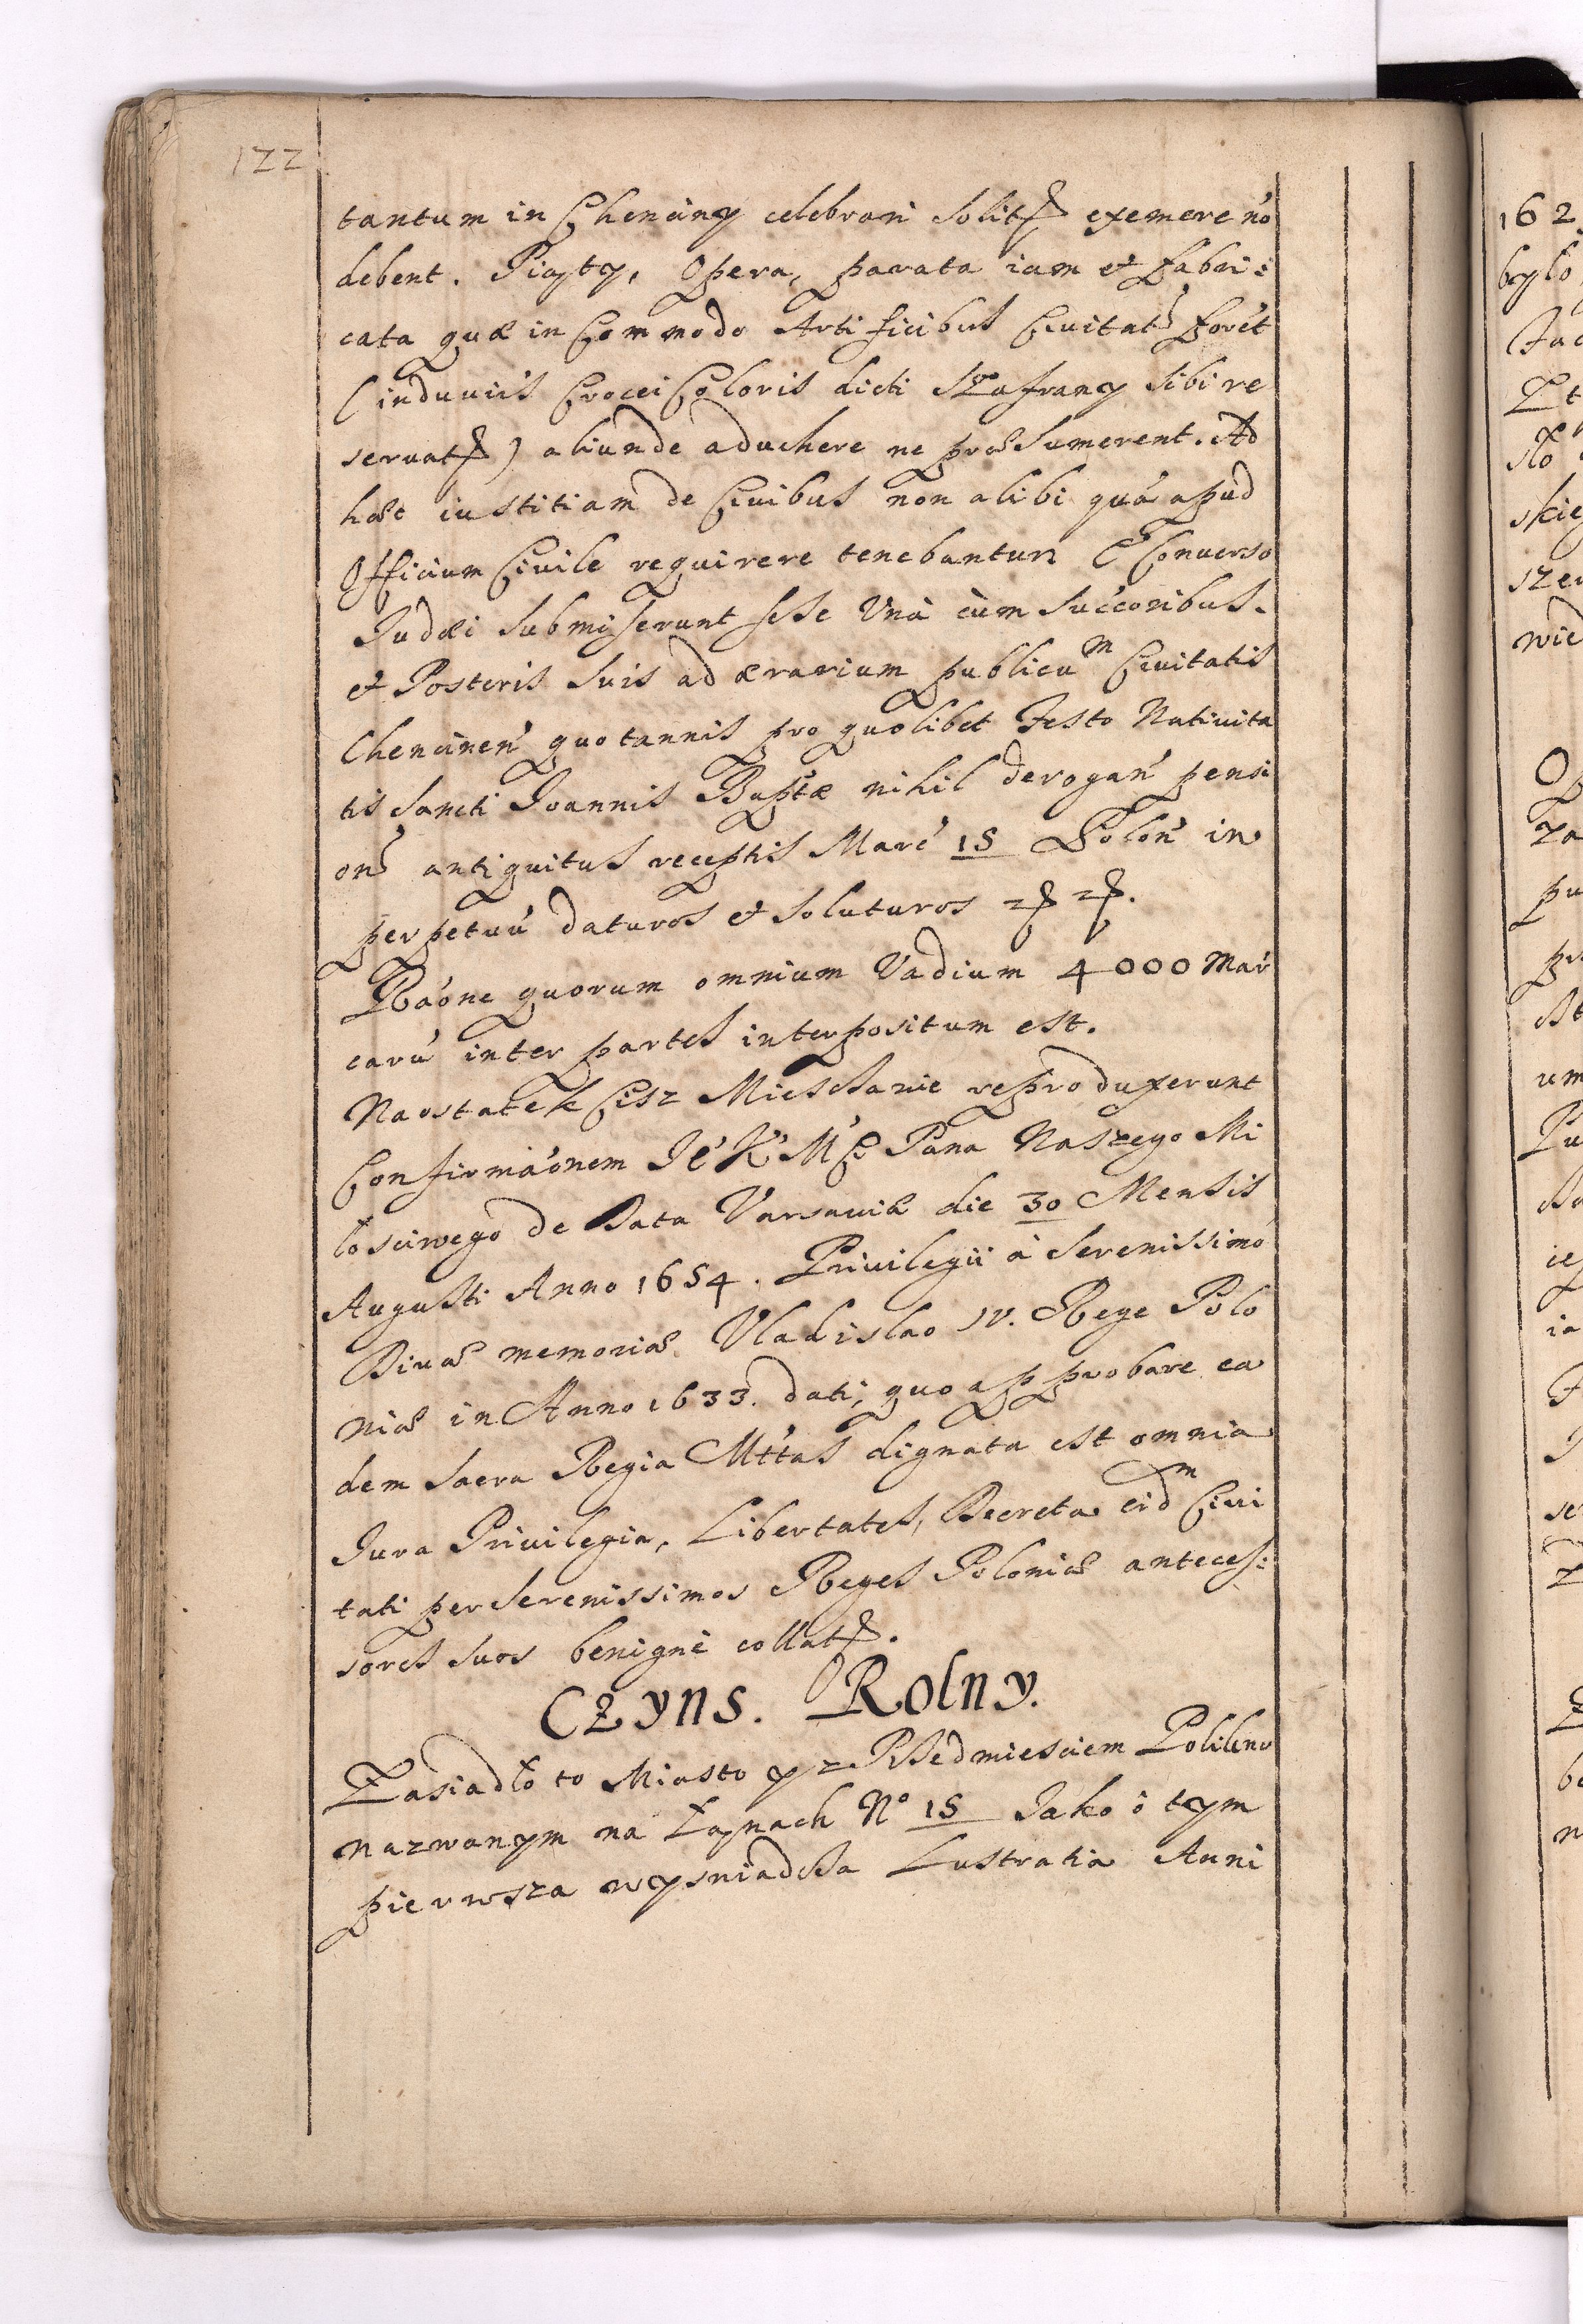 122
tantum in Chenciny celebrari solitꝭ exemere nõ
debent. Piąty, Opera, parata iam et Fabri:
cata quæ in Commodo Artificibus Ciuitatꝭ Foret
(induuiis Crocei Coloris dicti Szafrany sibi re
seruatꝭ) aliunde aduehere ne præsumerent. Ad
hæc iustitiam de Ciuibus non alibi quã apud
Officium Ciuile requirere tenebantur. E Conuerso
Judæi submiserunt sese Vnà cùm succoribus
et Posteris suis ad ærarium publicum Ciuitatis
Chencinen̓ quotannis pro quolibet Festo Natiuita
tis Sancti Joannis Baptæ nihil derogan̓ pensi
onꝭ antiquitus receptis Marc̓ 15 Polon̓ in
perpetuũ daturos et soluturos ꝝ ꝝ.
Raõne quorum omnium Vadium 4000 Mar
carũ inter partes interpositum est.
Naostatek Cisz Miesczanie reproduxerunt
Confirmaõnem Je̓ K̓ M̓ C Pana Naszego Mi
łosciwego de Data Varsauiæ die 30 Mensis
Augusti Anno 1654. Priuilegii à Serenissimo
Diuæ memoriæ Vladislao IV. Rege Polo
niæ in Anno 1633. dati, quo approbare ea
dem Sacra Regia Mttas dignata est omnia
Jura Priuilegia, Libertates, Decreta eidm Ciui
tati per Serenissimos Reges Poloniæ anteces:
sores suos benignè collatꝭ.
Czyns. Rolny.
Zasiadło to Miasto y z Przedmiesciem
nazwanym na Łaynach No 15 Jako ô tym
pierwsza wyswiadcza Lustratia Anni